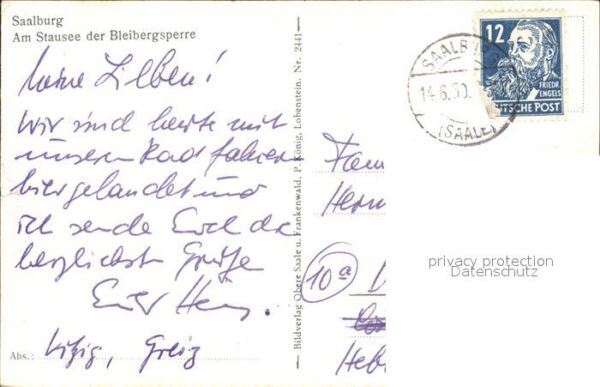 Saalburg
Am Stausee der Bleibergsperre
Meine Lieben!
Wir sind heute mit
unseren Radfahrern
hier gelandet und
ich sende Euch die
herzlichsten Grüße
Euer
Abs.: Greiz
Bildverlag Obere Saale u. Frankenwald, P. König, Lobenstein. Nr. 2441
SAALB
14.6.50
(SAALE)
12
FRIEDR
ENGELS
UTSCHE POST
Fam
Herm
10a
Heb
privacy protection
Datenschutz